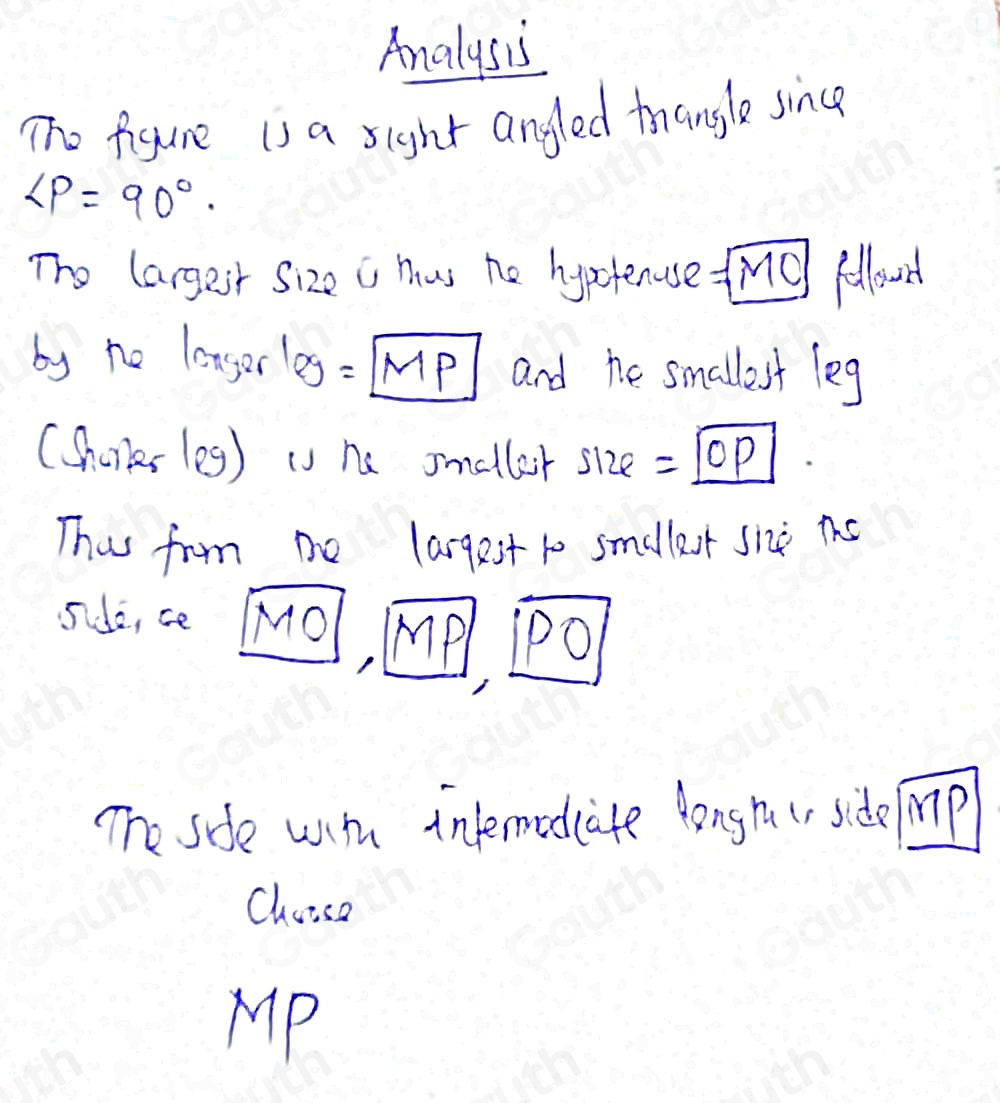 Analysis
The figure is a right angled triangle since
<P = 90°.
The largest size is thus the hypotenuse = MO followed
by the longer leg = MP and the smallest leg
(Shorter leg) is the smallest size = OP .
Thus from the largest to smallest size the
sides are MO , MP , PO
The side with intermediate length is side MP
Choose
MP